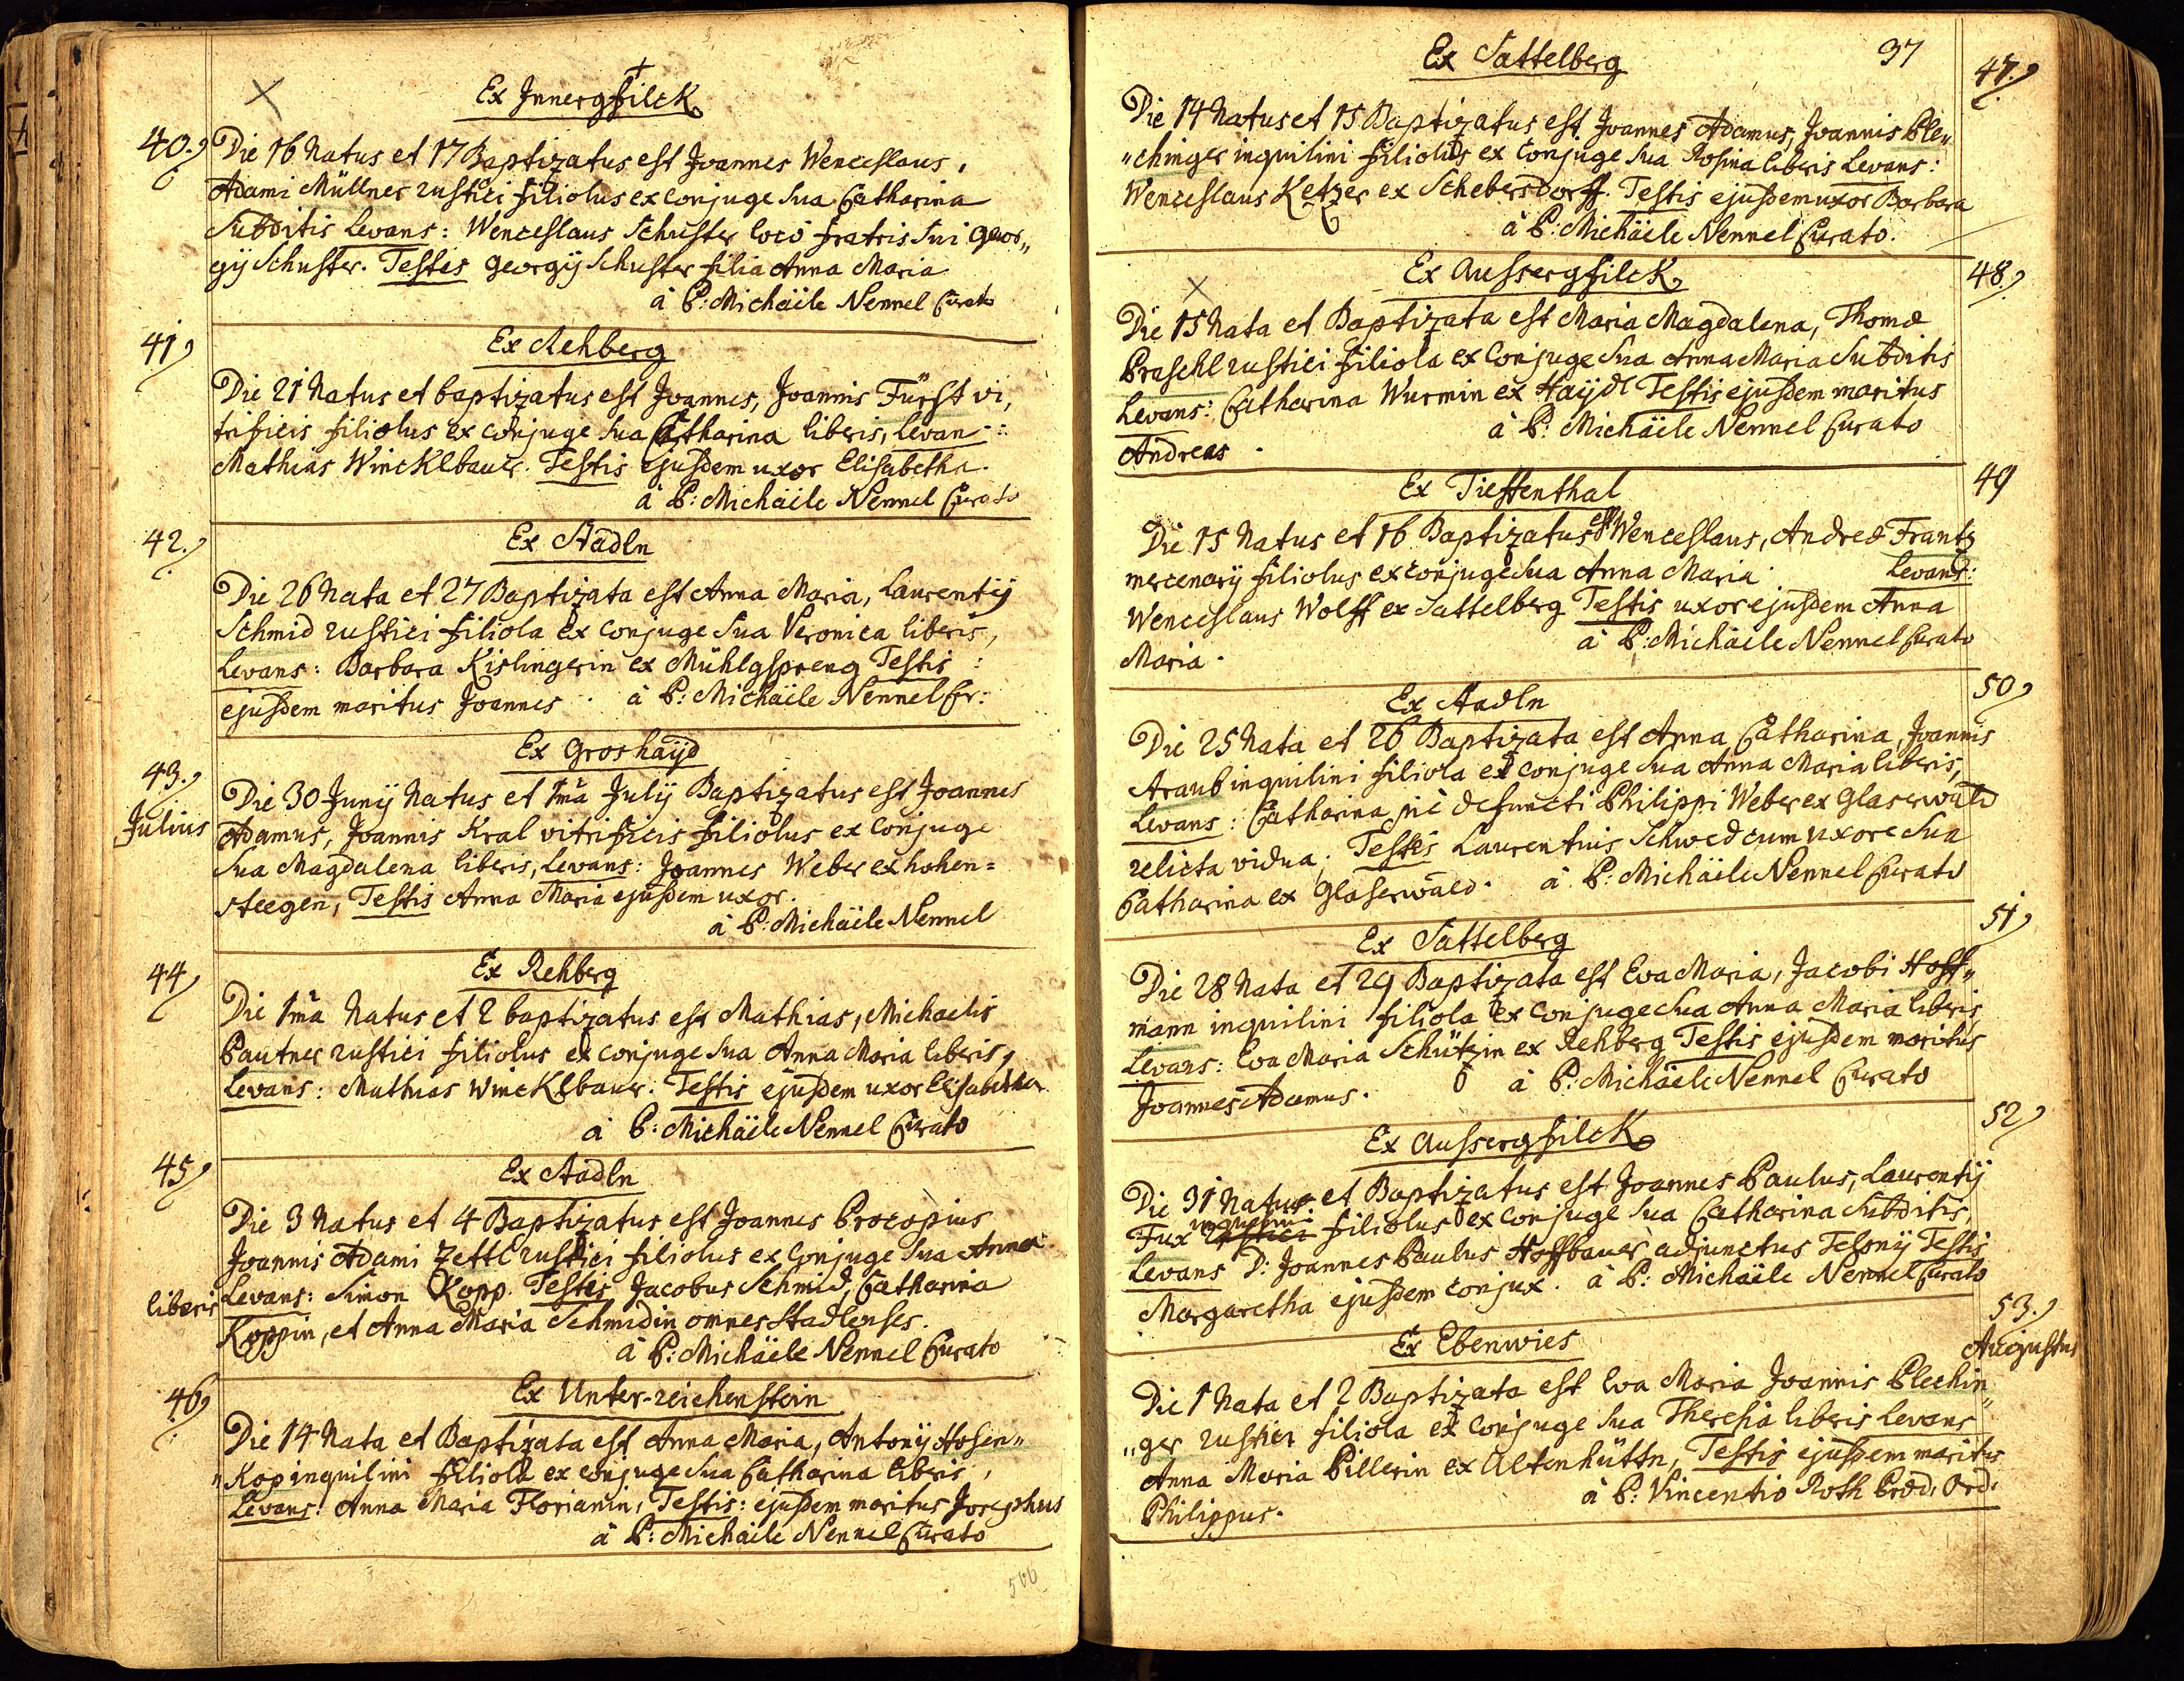 Ex Innergfilck
40. Die 16 Natus et 17 Baptizatus est Joannes Wenceslaus,
Adami Müllner rustici filiolus ex conjuge sua Catharina
Subditis Levans: Wenceslaus Schuster loco fratris sui Geor„
gij Schuster. Testis Georgij Schuster filia Anna Maria
à P: Michäele Nennel Curato
Ex Rehberg
41 Die 21 Natus et baptizatus est Joannes, Joannis Fürst vi,
trificis filiolus ex conjuge sua Catharina liberis, Levan:
Mathias Wincklbauer. Testis ejusdem uxor Elisabetha.
à P: Michäele Nennel Curato
Ex Stadln
42. Die 26 Nata et 27 Baptizata est Anna Maria, Laurentij
Schmid rustici filiola ex conjuge sua Veronica liberis,
Levans: Barbara Kislingerin ex Mühlgspreng Testis:
ejusdem maritus Joannes. à P: Michäele Nennel Cur:
Ex Groshaÿd
43. Die 30 Junij Natus et 1mâ Julij Baptizatus est Joannes
Julius Adamus, Joannis Kral vitrificis filiolus ex conjuge
sua Magdalena liberis, Levans: Joannes Weber ex hohen=
steegen, Testis Anna Maria ejusdem uxor.
à P: Michäele Nennel
Ex Rehberg
44 Die 1mâ Natus et 2 baptizatus est Mathias, Michaelis
Pautner rustici filiolus ex conjuge sua Anna Maria liberis,
Levans: Mathias Wincklbaur. Testis ejusdem uxor Elisabetha
à P: Michäele Nennel Curato
Ex Stadln
45 Die 3 Natus et 4 Baptizatus est Joannes Procopius
Joannis Adami Zettl rustici filiolus ex conjuge sua Anna
liberis Levans: Simon Kopp. Testes Jacobus Schmid, Catharina
Koppin, et Anna Maria Schmidin omnes Stadlenses.
à P: Michäele Nennel Curato
Ex Unter-reichenstein
46 Die 14 Nata et Baptizata est Anna Maria, Antonij Hosen„
„Kop inquilini filiola ex conjuge sua Catharina liberis,
Levans: Anna Maria Florianin, Testis: ejusdem maritus Josephus
à P: Michäele Nennel Curato
506
37
Ex Sattelberg
47. Die 14 Natus et 15 Baptizatus est Joannes Adamus, Joannis Ple„
„chinger inquilini filiolus ex conjuge sua Rosina liberis Levans:
Wenceslaus Ketzer ex Schebersdorff. Testis ejusdem uxor Barbara
à P: Michäele Nennel Curato.
Ex Aussergfilck
48. Die 15 Nata et Baptizata est Maria Magdalena, Thomæ
Praschl rustici filiola ex conjuge sua Anna Maria Subditis
Levans: Catharina Wurmin ex Haÿdl Testis ejusdem maritus
à P: Michäele Nennel Curato
Andreas.
Ex Tieffenthal
49 Die 15 Natus et 16 Baptizatus est Wenceslaus, Andreæ Frantz
mercenarij filiolus ex conjuge sua Anna Maria. Levans:
Wenceslaus Wolff ex Sattelberg Testis uxor ejusdem Anna
à P: Michäele Nennel Curato
Maria.
Ex Stadln
50 Die 25 Nata et 26 Baptizata est Anna Catharina, Joannis
Straub inquilini filiola ex conjuge sua Anna Maria liberis,
Levans: Catharina piè defuncti Philippi Weber ex Glaserwald
relicta vidua. Testes Laurentius Schwed cum uxore sua
Catharina ex Glaserwald. à P: Michäele Nennel Curato
Ex Sattelberg
51 Die 28 Nata et 29 Baptizata est Eva Maria, Jacobi Hoff„
mann inquilini filiola ex conjuge sua Anna Maria liberis
Levans: Eva Maria Schützin ex Rehberg Testis ejusdem maritus
Joannes Adamus. à P: Michäele Nennel Curato
Ex Aussergfilck
52 Die 31 Natus et Baptizatus est Joannes Paulus, Laurentij
Fux rustici inquilini filiolus ex conjuge sua Catharina Subditis,
Levans D: Joannes Paulus Hoffbauer adjunctus Telonij Testis
Margaretha ejusdem conjux. à P: Michäele Nennel Curato
Ex Ebenwies
53. Augustus
Die 1 Nata et 2 Baptizata est Eva Maria Joannis Plechin„
„ger rustici filiola ex conjuge sua Theresia liberis Levans
Anna Maria Pillerin ex Altenhüttn, Testis ejusdem maritus
à P: Vincentio Roth Præd: Ord:
Philippus.